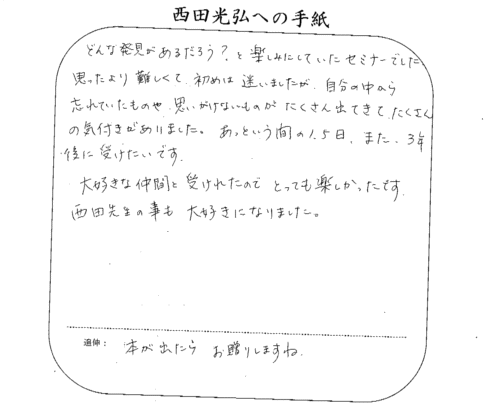 西田光弘への手紙
どんな発見があるだろう？と楽しみにしていたセミナーでした
思ったより難しくて、初めは迷いましたが、自分の中から
忘れていたものや、思いがけないものがたくさん出てきて、たくさん
の気付きがありました。あっという間の1.5日、また、3年
後に受けたいです。
大好きな仲間と受けれたのでとっても楽しかったです。
西田先生の事も大好きになりました。
追伸：本が出たらお贈りしますね。